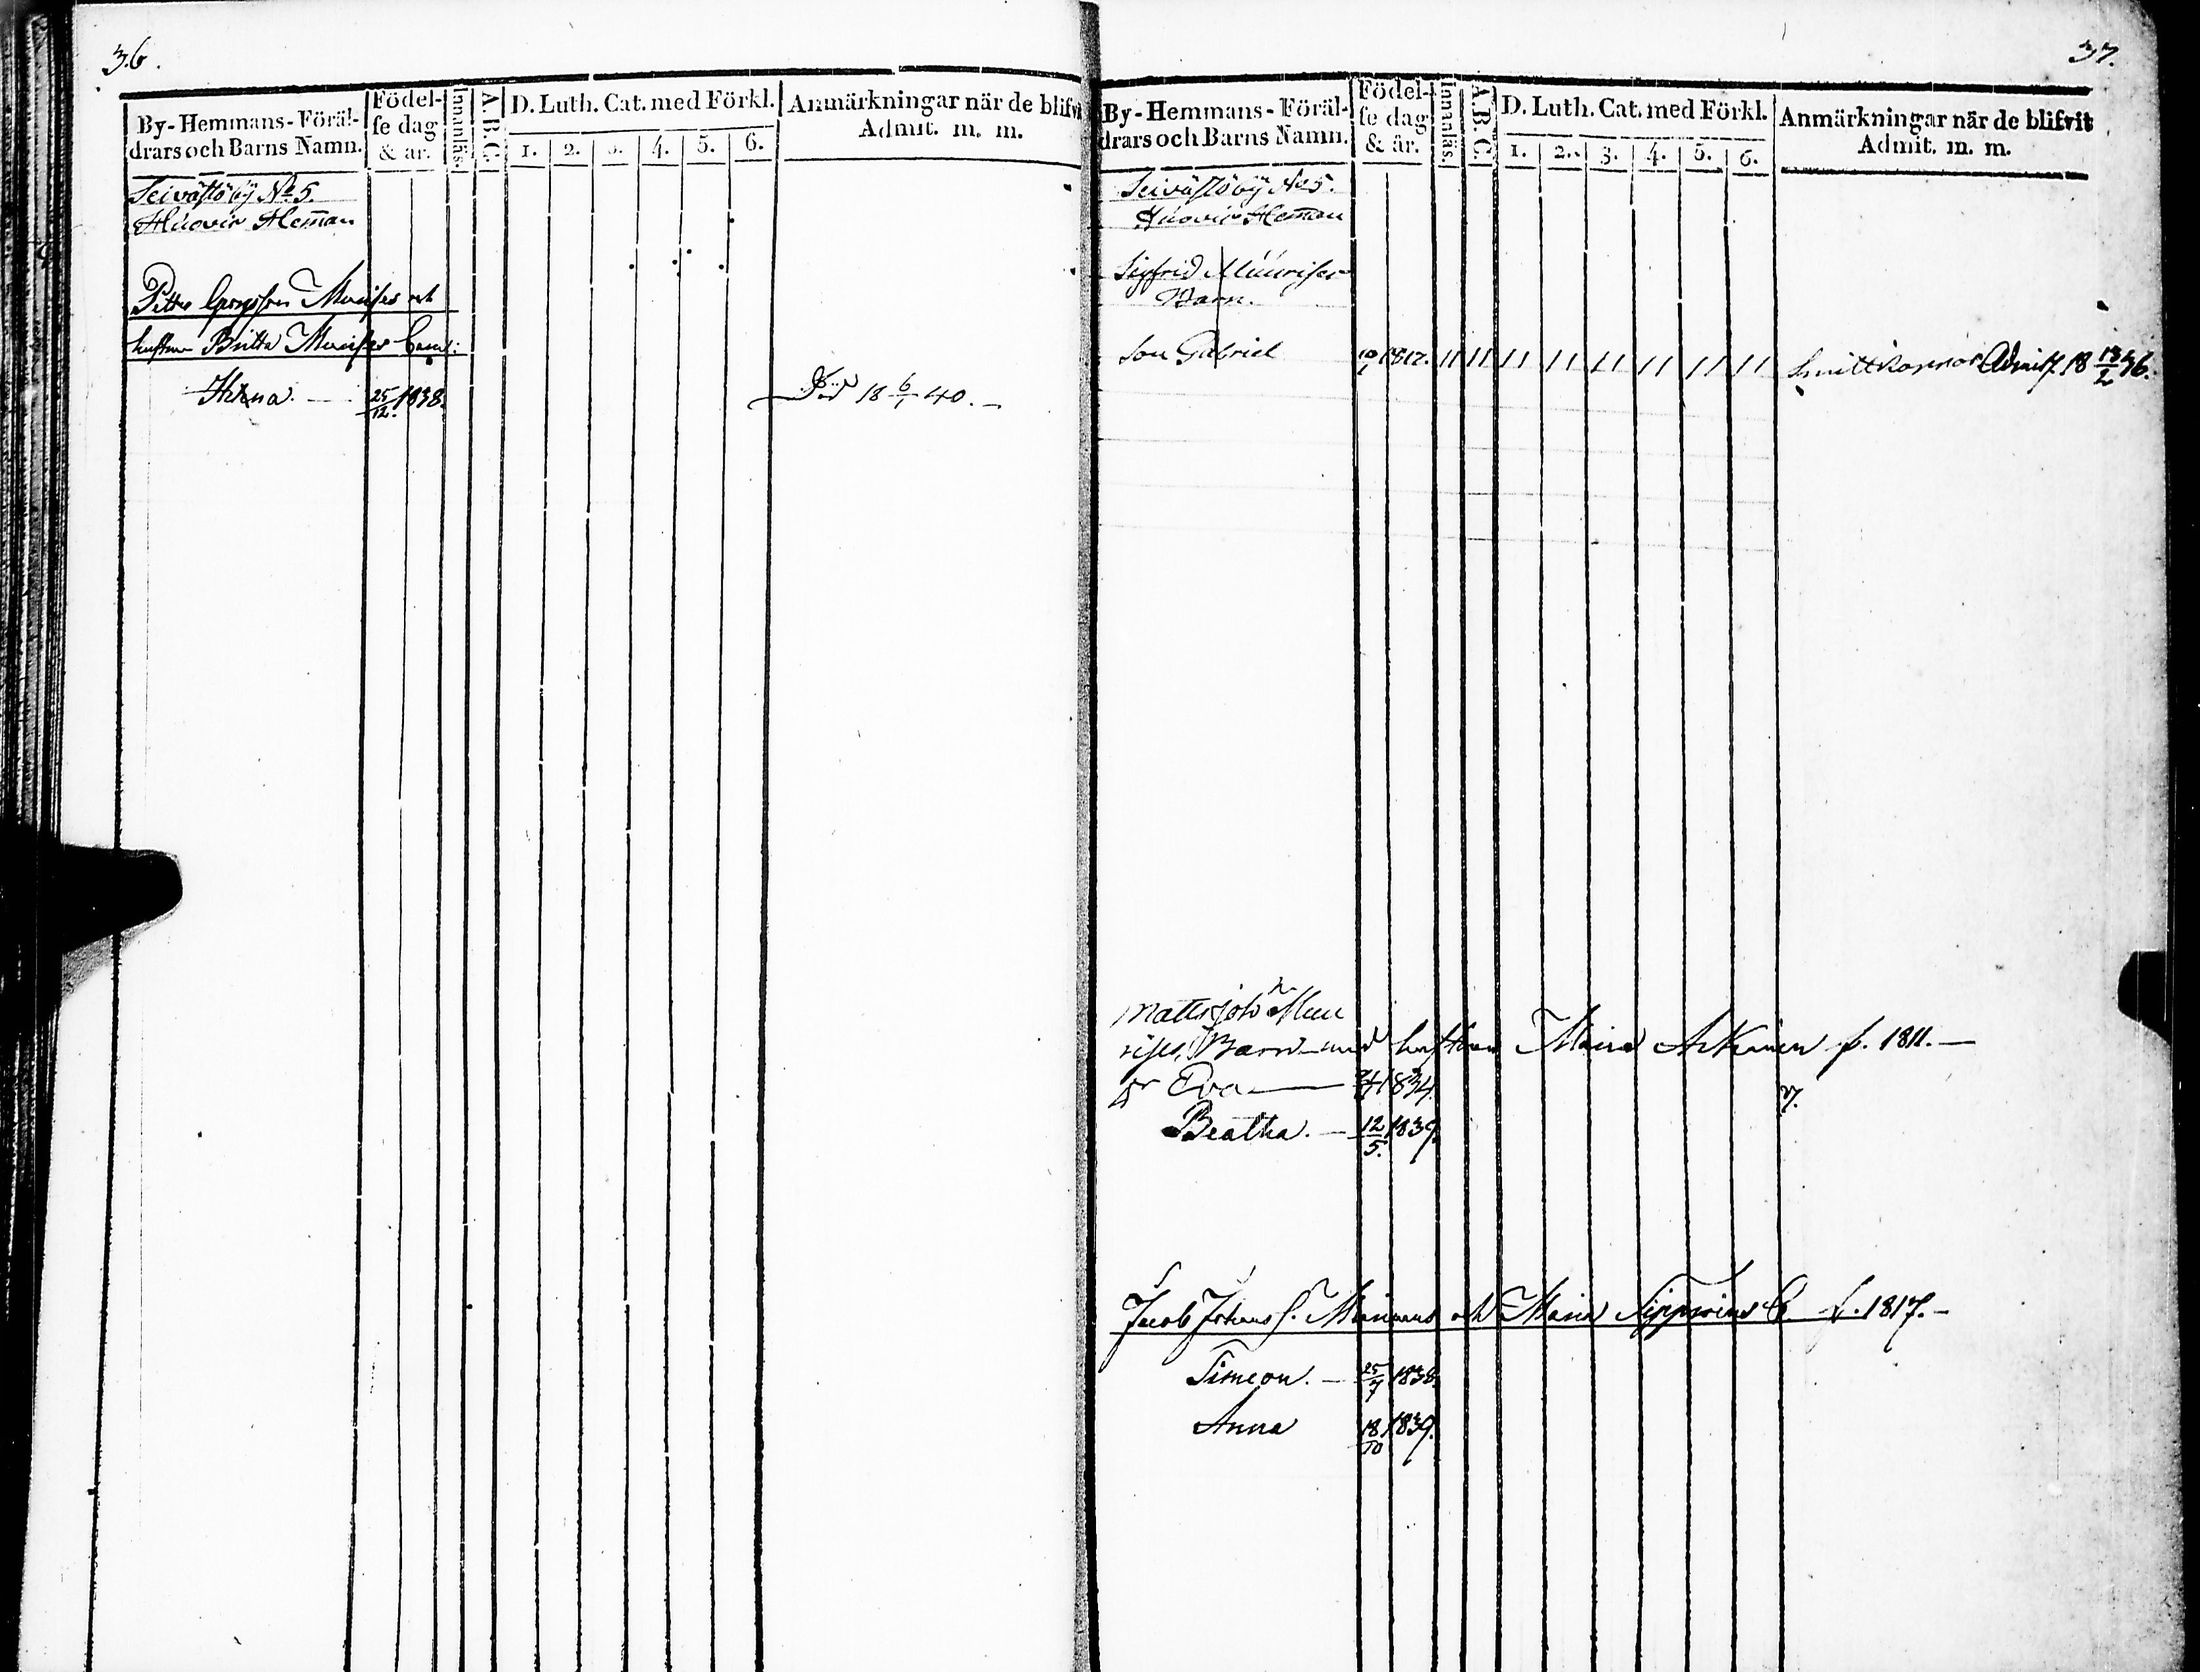 36.
By-Hemmans-Föräl-
drars och Barns Namn.
Födel-
se dag
& år.
Innanläs.
A.B.C.
D. Luth. Cat. med Förkl.
1. 2. 3. 4. 5. 6.
Anmärkningar när de blifvi
Admit. m. m.
Seivästö bÿ No 5.
Huovin Heman
Petter Muurises och
hustrun Britta Muurises barn:
Helena. 25/12. 1838. Död 18 6/1 40.
37.
By-Hemmans-Föräl-
drars och Barns Namn.
Födel-
se dag
& år.
Innanläs.
A.B.C.
D. Luth. Cat. med Förkl.
1. 2. 3. 4. 5. 6.
Anmärkningar när de blifvit
Admit. m. m.
Seivästö bÿ No 5.
Huovin Heman
Sigfrid Muurises
Barn.
Son Gabriel 10/1 1817. // // // // // // // // Smittkoppor Admitt. 18 13/2 36.
Matts Joh Muu
rises Barn med hustrun Maria f. 1811.
Dr Eva 1834.
Beatha. 12/5. 1839.
Jacob Johans S. och Maria f. 1817.
Simeon. 25/7 1838.
Anna 18/10 1839.